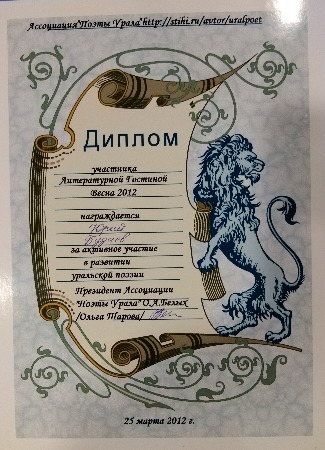 Ассоциация"Поэты Урала"http://stihi.ru/avtor/uralpoet
Диплом
участника
Литературной Гостиной
Весна 2012
награждается
Юрий
за активное участие
в развитии
уральской поэзии
Президент Ассоциации
"Поэты Урала"О.А.Белых
/Ольга Тарова/
25 марта 2012 г.